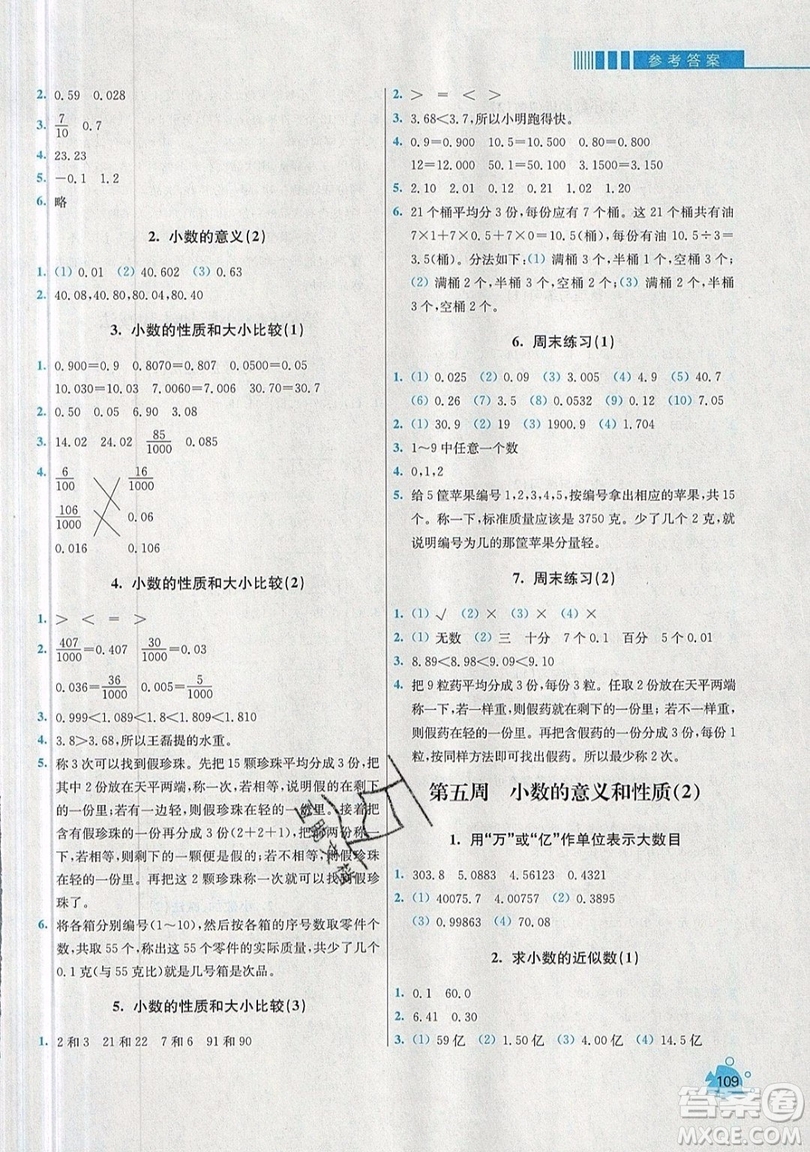 参考答案
2. 0.59 0.028
3. 7/10 0.7
4. 23.23
5. －0.1 1.2
6. 略
2. 小数的意义(2)
1. (1) 0.01 (2) 40.602 (3) 0.63
2. 40.08,40.80,80.04,80.40
3. 小数的性质和大小比较(1)
1. 0.900＝0.9 0.8070＝0.807 9.500＝9.5
10.030＝10.03 7.0060＝7.006 30.70＝30.7
2. 0.50 0.05 6.90 5.50
3. 14.02 24.02 85/1000 0.085
4. 6/100 16/1000
106/1000 0.06
0.016 0.106
4. 小数的性质和大小比较(2)
1. ＞ ＜ ＝ ＞
2. 407/1000＝0.407 30/1000＝0.03
0.036＝36/1000 0.005＝5/1000
3. 0.999＜1.089＜1.8＜1.809＜1.890
4. 3.8＞3.68,所以王磊提的水重。
5. 称3次可以找到假珍珠。先把15颗珍珠平均分成3份,把
其中2份放在天平两端,称得一样重,说明假的在剩下
的一份里;若有一边轻,则假珍珠在轻的一份里。接着把
假珍珠所在的一份再分成3份(2＋2＋1),同样称第
二次,如果一样重,剩下1颗就是假珍珠,否则假珍珠
在轻的一份里。再把这2颗珍珠称一次就可以找到假珍
珠了。
6. 将各箱分别编号(1～10),然后按各箱的序号数取零件个
数,共取55个,称出这55个零件的实际质量,共少了几个
0.1克(与55克比较)就是几号箱是次品。
5. 小数的性质和大小比较(3)
1. 2和3 21和22 7和6 91和90
2. ＞ ＝ ＜ ＞
3. 3.68＜3.7,所以小明跑得快。
4. 0.9＝0.900 10.5＝10.500 0.80＝0.800
12＝12.000 50.1＝50.100 3.1500＝3.150
5. 2.10 2.01 0.12 0.21 1.20 1.02
6. 21个桶平均分3份,每份应有7个桶。这21个桶共有油
7×1＋7×0.5＋7×0＝10.5(桶),每份有油10.5÷3＝
3.5(桶)。分法如下:(1)满桶3个,半桶1个,空桶3个;
(2)满桶2个,半桶3个,空桶2个;(3)满桶2个,半桶3
个,空桶2个。
6. 周末练习(1)
1. (1) 0.025 (2) 0.09 (3) 3.005 (4) 4.9 (5) 40.7
(6) 0.26 (7) 3.5 (8) 0.0532 (9) 0.12 (10) 7.05
2. (1) 30.9 (2) 19 (3) 1900.9 (4) 1.704
3. 1～9中任意一个数
4. 0,1,2
5. 给5筐苹果编号1,2,3,4,5,按编号拿出相应的苹果,共15
个。称一下,标准质量应该是3750克。少了几个2克,就
说明编号为几的那筐苹果分量轻。
7. 周末练习(2)
1. (1) √ (2) × (3) × (4) ×
2. (1) 无数 (2) 三 十分 7个0.1 百分 5个0.01
3. 8.89＜8.98＜9.09＜9.10
4. 把9粒药平均分成3份,每份3粒。任取2份放在天平两端
称,若一样重,则假药就在剩下的一份里;若不一样重,则
假药就在轻的一份里。同样把假药所在的一份平均分3份,每份
1粒,按同样方法即可找出假药。所以最少称2次。
第五周 小数的意义和性质(2)
1. 用“万”或“亿”作单位表示大数目
1. 303.8 5.0883 4.56123 0.4321
2. (1) 40075.7 (2) 0.00057 (2) 0.3895
(3) 0.99863 (4) 70.08
2. 求小数的近似数(1)
1. 0.1 60.0
2. 6.41 0.30
3. (1) 59亿 (2) 1.50亿 (3) 4.00亿 (4) 14.5亿
109
答案圈
MXQE.COM